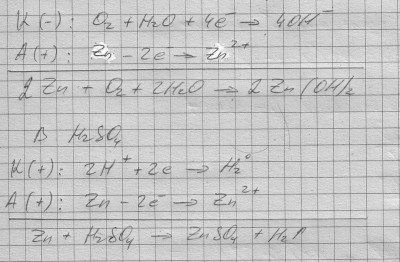 K(-): O₂ + H₂O + 4e⁻ → 4OH⁻
A(+): Zn - 2e⁻ → Zn²⁺
2Zn + O₂ + 2H₂O → 2Zn(OH)₂
В H₂SO₄
K(+): 2H⁺ + 2e → H₂⁰
A(+): Zn - 2e⁻ → Zn²⁺
Zn + H₂SO₄ → ZnSO₄ + H₂↑